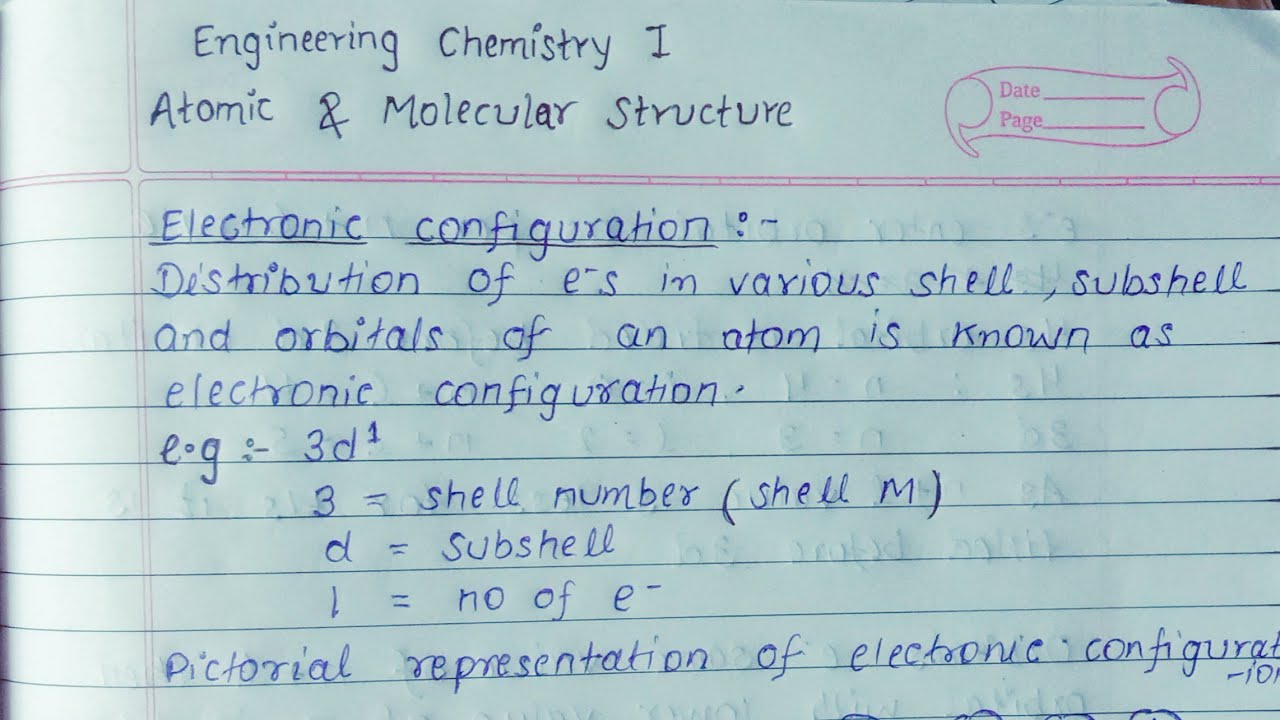 Engineering Chemistry I
Atomic & Molecular Structure
Date
Page
Electronic configuration :-
Distribution of e⁻s in various shell, subshell
and orbitals of an atom is known as
electronic configuration.
e.g :- 3d¹
3 = shell number (shell M)
d = subshell
1 = no of e⁻
Pictorial representation of electronic configurat
-ion